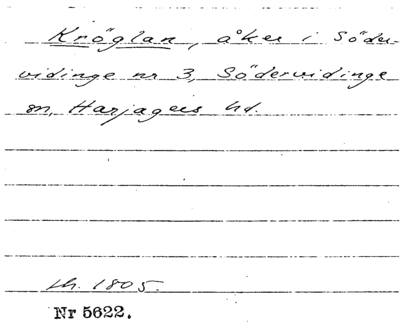 Kröglan, åker i Söder-
vidinge nr 3, Södervidinge
sn, Harjagers hd.
lh. 1805.
Nr 5622.